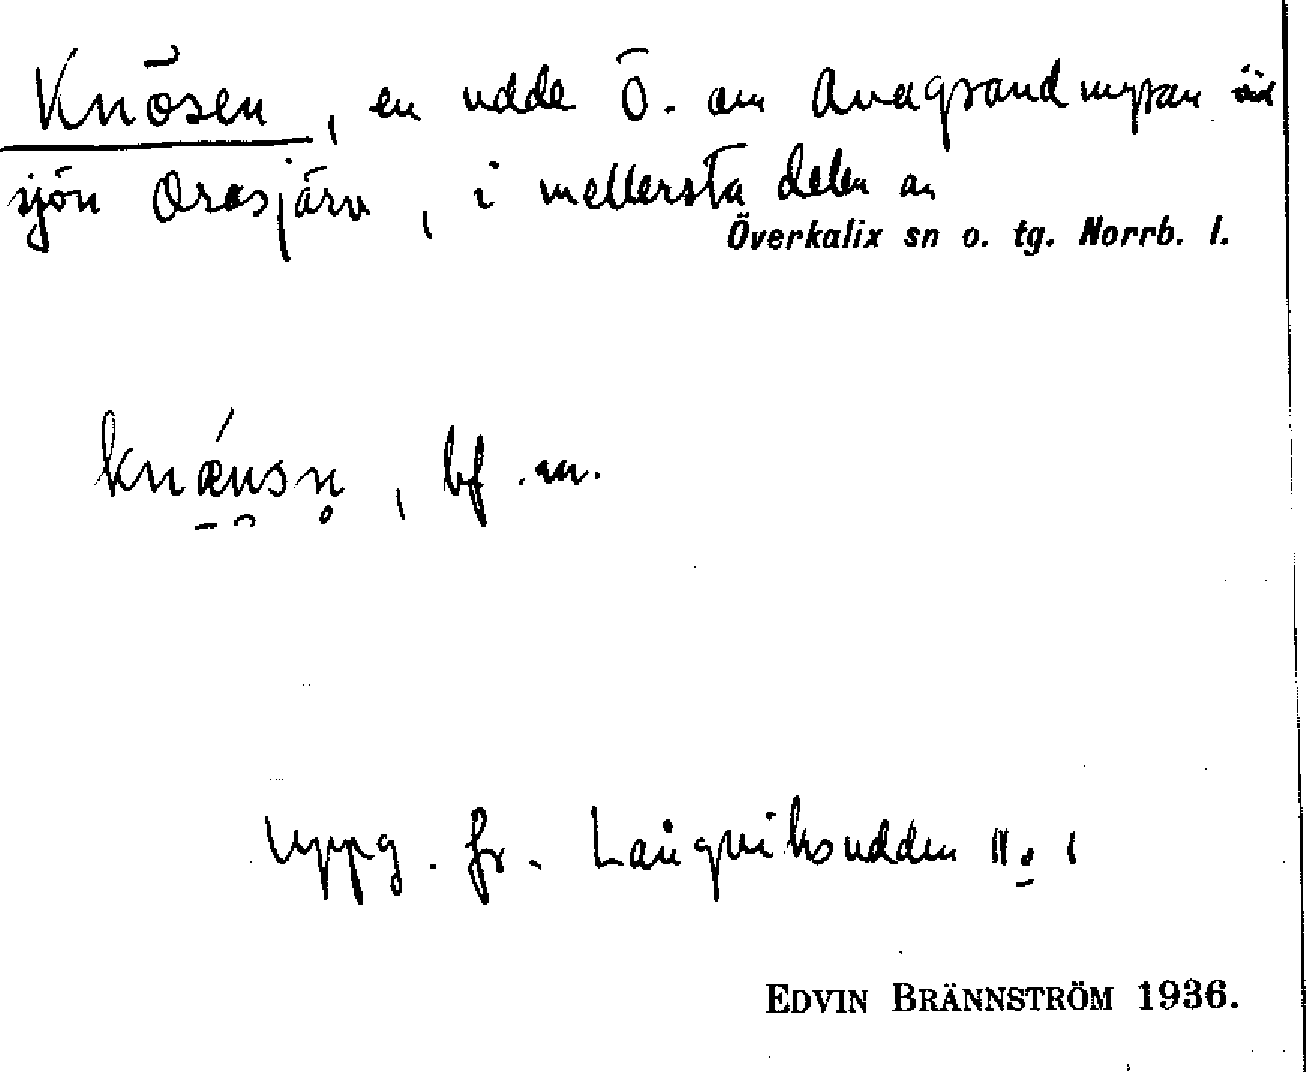 Knösen, en udde Ö. om Avagrandmyran vid
sjön Orasjärv, i mellersta delen av
Överkalix sn o. tg. Norrb. l.
knæusn̥, bf. m.
Uppg. fr. Långviksudden no 1
EDVIN BRÄNNSTRÖM 1936.